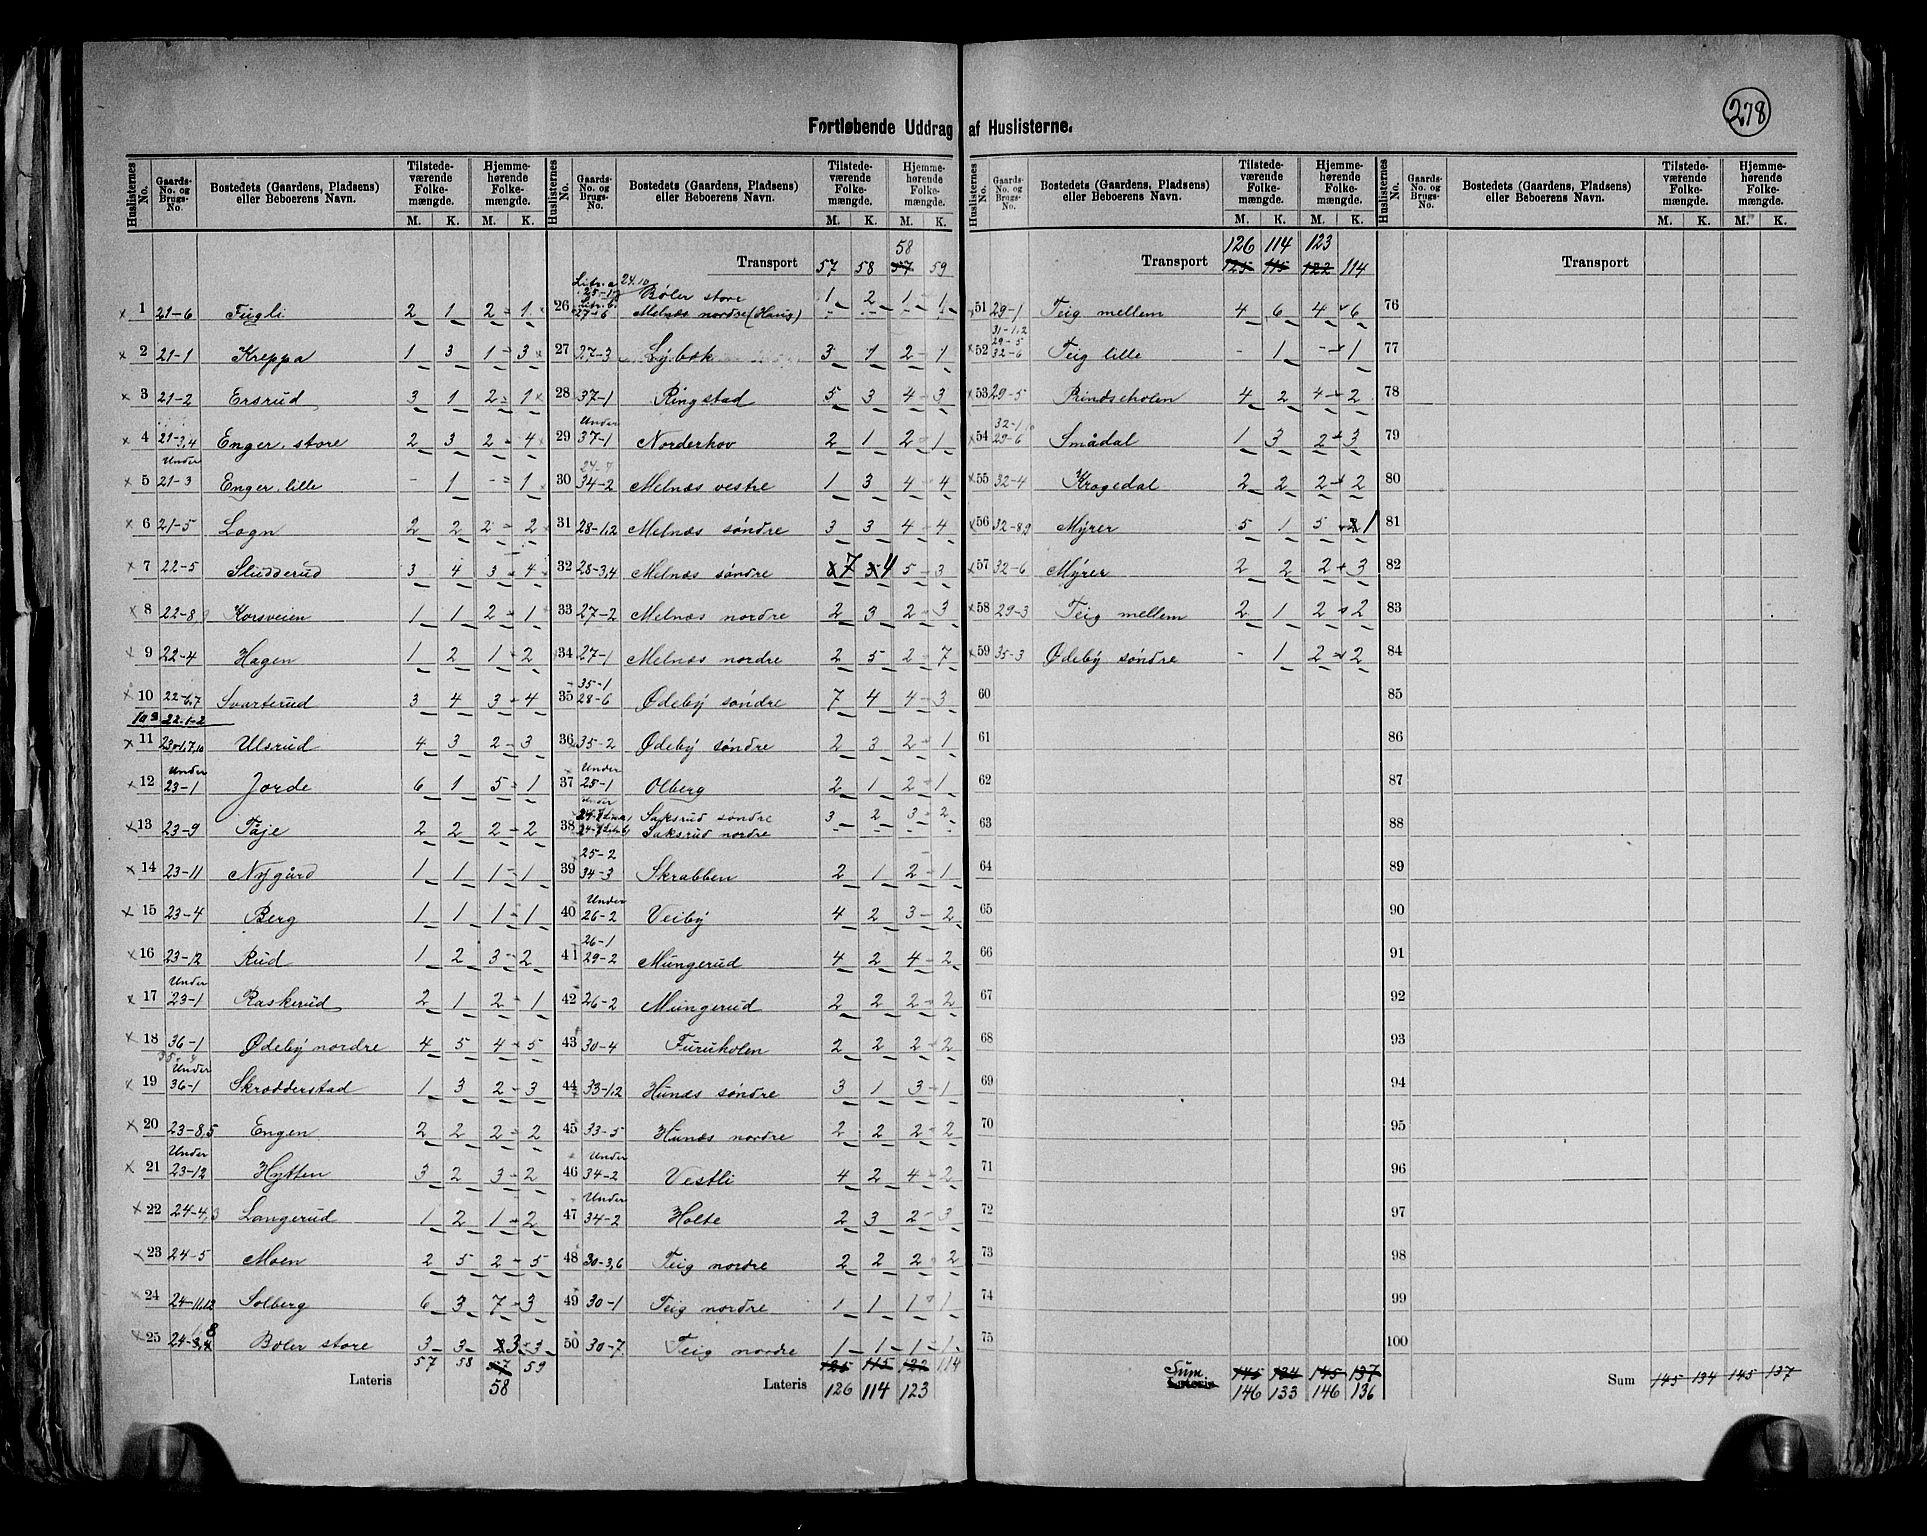 278
Fortløbende Uddrag af Huslisterne.
Huslisternes No. Gaards-No. og Brugs-No. Bostedets (Gaardens, Pladsens) eller Beboerens Navn. Tilstedeværende Folkemængde. M. K. Hjemmehørende Folkemængde. M. K.
1 21-6 Fugli 2 1 2 1
2 21-1 Kreppa 1 3 1 3
3 21-2 Ersrud 3 1 2 1
4 21-3,4 Enger store 2 3 2 4
5 Under 21-3 Enger lille - 1 - 1
6 21-5 Logn 2 2 2 2
7 22-5 Sludderud 3 4 3 4
8 22-8 Korsveien 1 1 2 1
9 22-4 Hagen 1 2 1 2
10 22-6,7 Svarterud 3 4 3 4
22-1-2
11 23-1,7,10 Ulsrud 4 3 2 3
12 Under 23-1 Jorde 6 1 5 1
13 23-9 Tåje 2 2 2 2
14 23-11 Nygård 1 1 1 1
15 23-4 Berg 1 1 1 1
16 23-12 Rud 1 2 3 2
17 Under 23-1 Raskerud 2 1 2 1
18 36-1 Ødeby nordre 4 5 4 5
19 Under 36-1 Skrædderstad 1 3 2 3
20 23-8,5 Engen 2 2 2 2
21 Under 23-12 Hytten 3 2 3 2
22 24-4,3 Langerud 1 2 1 2
23 24-5 Moen 2 5 2 5
24 24-11,12 Solberg 6 3 7 3
25 24-8 Bøler store 3 3 3 3
57 58 57 59
Lateris 58
Huslisternes No. Gaards-No. og Brugs-No. Bostedets (Gaardens, Pladsens) eller Beboerens Navn. Tilstedeværende Folkemængde. M. K. Hjemmehørende Folkemængde. M. K.
58
Transport 57 58 57 59
Litr. a 24.10
25-1 Bøler store 1 2 1 1
26 Litr. b. 27-6 Melnæs nordre (Haug) - - - -
27 27-3 Lybæk 3 1 2 1
28 37-1 Ringstad 5 3 4 3
29 Under 37-1 Norderhov 2 1 2 1
30 34-2 Melnæs vestre 1 3 4 4
31 28-1,2 Melnæs søndre 3 3 4 4
32 28-3,4 Melnæs søndre 7 4 5 3
33 27-2 Melnæs nordre 2 3 2 3
34 27-1 Melnæs nordre 2 5 2 7
35 35-1 28-6 Ødeby søndre 7 4 4 3
36 35-2 Ødeby søndre 2 3 2 1
37 Under 25-1 Olberg 2 1 2 1
Under
Saksrud søndre 3 2 3 2
38 Saksrud nordre - - - -
39 25-2 34-3 Skrabben 2 1 2 1
40 Under 26-2 Veiby 4 2 3 2
41 26-1 29-2 Mungerud 4 2 4 2
42 26-2 Mungerud 2 2 2 2
43 30-4 Furuholen 2 2 2 2
44 33-1,2 Hunæs søndre 3 1 3 1
45 33-5 Hunæs nordre 2 2 2 2
46 Under 34-2 Vestli 4 2 4 2
47 Under 34-2 Holte 2 3 2 3
48 30-3,6 Teig nordre 2 2 2 2
49 30-1 Teig nordre 1 1 1 1
50 30-7 Teig nordre 1 1 1 1
125 115 122 114
Lateris 126 114 123
Huslisternes No. Gaards-No. og Brugs-No. Bostedets (Gaardens, Pladsens) eller Beboerens Navn. Tilstedeværende Folkemængde. M. K. Hjemmehørende Folkemængde. M. K.
126 114 123
Transport 125 115 122 114
51 29-1 Teig mellem 4 6 4 6
31-1,2
29-5
52 32-6 Teig lille - 1 - 1
53 29-5 Rindseholen 4 2 4 2
32-1
54 29-6 Smådal 1 3 2 3
55 32-4 Krogedal 2 2 2 2
56 32-8,9 Myrer 5 1 5 1
57 32-6 Myrer 2 2 2 3
58 29-3 Teig mellem 2 1 2 2
59 35-3 Ødeby søndre - 1 2 2
60
61
62
63
64
65
66
67
68
69
70
71
72
73
74
75
Sum 145 134 145 137
Lateris 146 133 146 136
Huslisternes No. Gaards-No. og Brugs-No. Bostedets (Gaardens, Pladsens) eller Beboerens Navn. Tilstedeværende Folkemængde. M. K. Hjemmehørende Folkemængde. M. K.
Transport
76
77
78
79
80
81
82
83
84
85
86
87
88
89
90
91
92
93
94
95
96
97
98
99
100
Sum 145 134 145 137